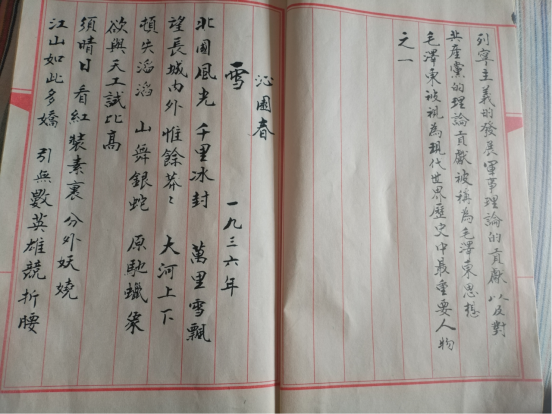 列寧主義的發展軍事理論的貢獻以及對
共產黨的理論貢獻被稱為毛澤東思想
毛澤東被視為現代世界歷史中最重要人物
之一
沁園春
雪 一九三六年
北國風光 千里冰封 萬里雪飄
望長城內外 惟餘莽〻 大河上下
頓失滔滔 山舞銀蛇 原馳蠟象
欲與天工試比高
須晴日 看紅裝素裹 分外妖嬈
江山如此多嬌 引無數英雄競折腰